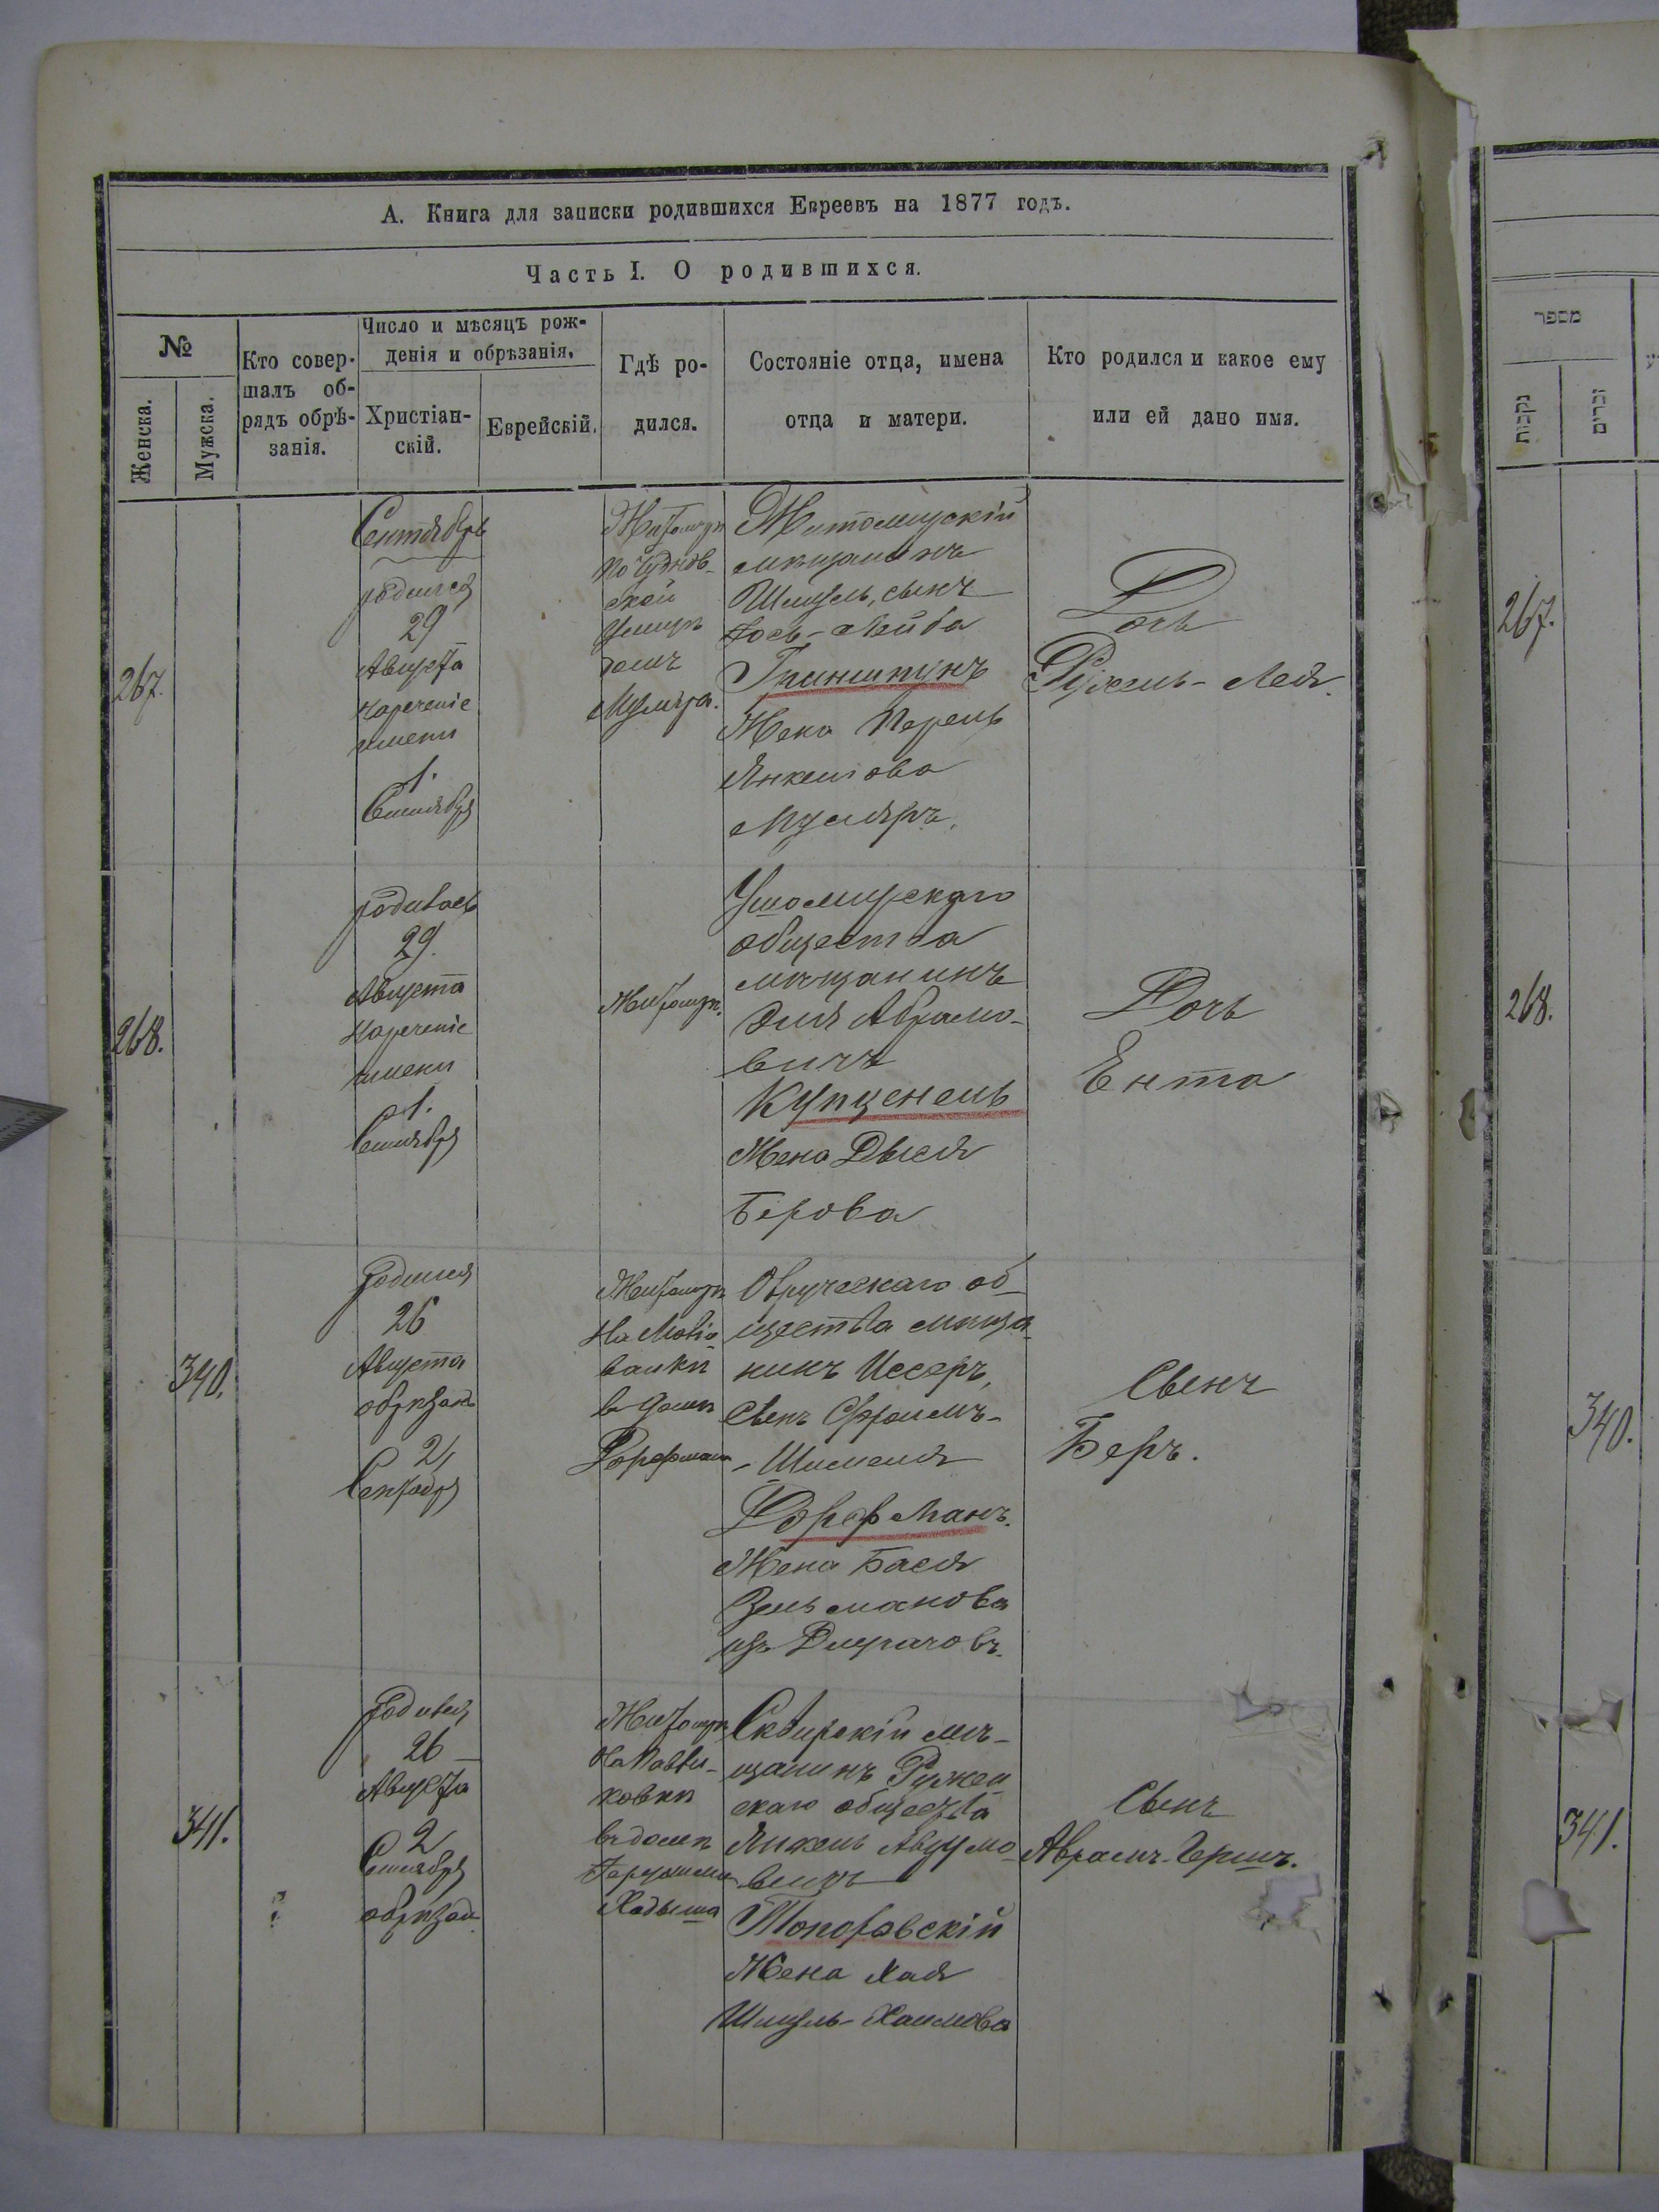 А. Книга для записки родившихся Евреевъ на 1877 годъ.
Часть I. О родившихся.
№
Женска.
Мужска.
Кто совер-
шалъ об-
рядъ обрѣ-
занія.
Число и мѣсяцъ рож-
денія и обрѣзанія.
Христіан-
скій.
Еврейскій.
Гдѣ ро-
дился.
Состояніе отца, имена
отца и матери.
Кто родился и какое ему
или ей дано имя.
267.
Сентябрь
родился
29
Августа
нареченіе
имени
1.
Сентября
Житомир
по Чуднов-
ской
улицѣ
домъ
Муляра.
Житомирскій
мѣщанинъ
Шмуль, сынъ
Іось-Лейба
Гриншпунъ
Жена Перель
Янкелова
Муляръ.
Дочь
Рухель-Лея.
268.
родилась
29.
Августа
нареченіе
имени
1.
Сентября
Житомир.
Ушомирскаго
общества
мѣщанинъ
Эля Абрамо-
вичъ
Купценель
Жена Двися
Берова
Дочь
Ента
340.
родился
26
Августа
обрѣзанъ
2
Сентября
Житомир
в домѣ
Дорфмана
Овручскаго об-
щества мѣща-
нинъ Иссеръ,
сынъ Эфроимъ-
-Шмеля
Дорфманъ.
Жена Бася
Зельманова
изъ
Сынъ
Беръ.
341.
родился
26
Августа
2
Сентября
обрѣзан
Житомир
на Павли-
ковки
въ домѣ
Сквирскій мѣ-
щанинъ Ружин
скаго общества
Янкель
вичъ
Топоровскій
Жена Хая
Шмуль-Хаимова
Сынъ
Абрамъ-Гершъ.
מספר
נקבות
זכרים
267.
268.
340.
341.